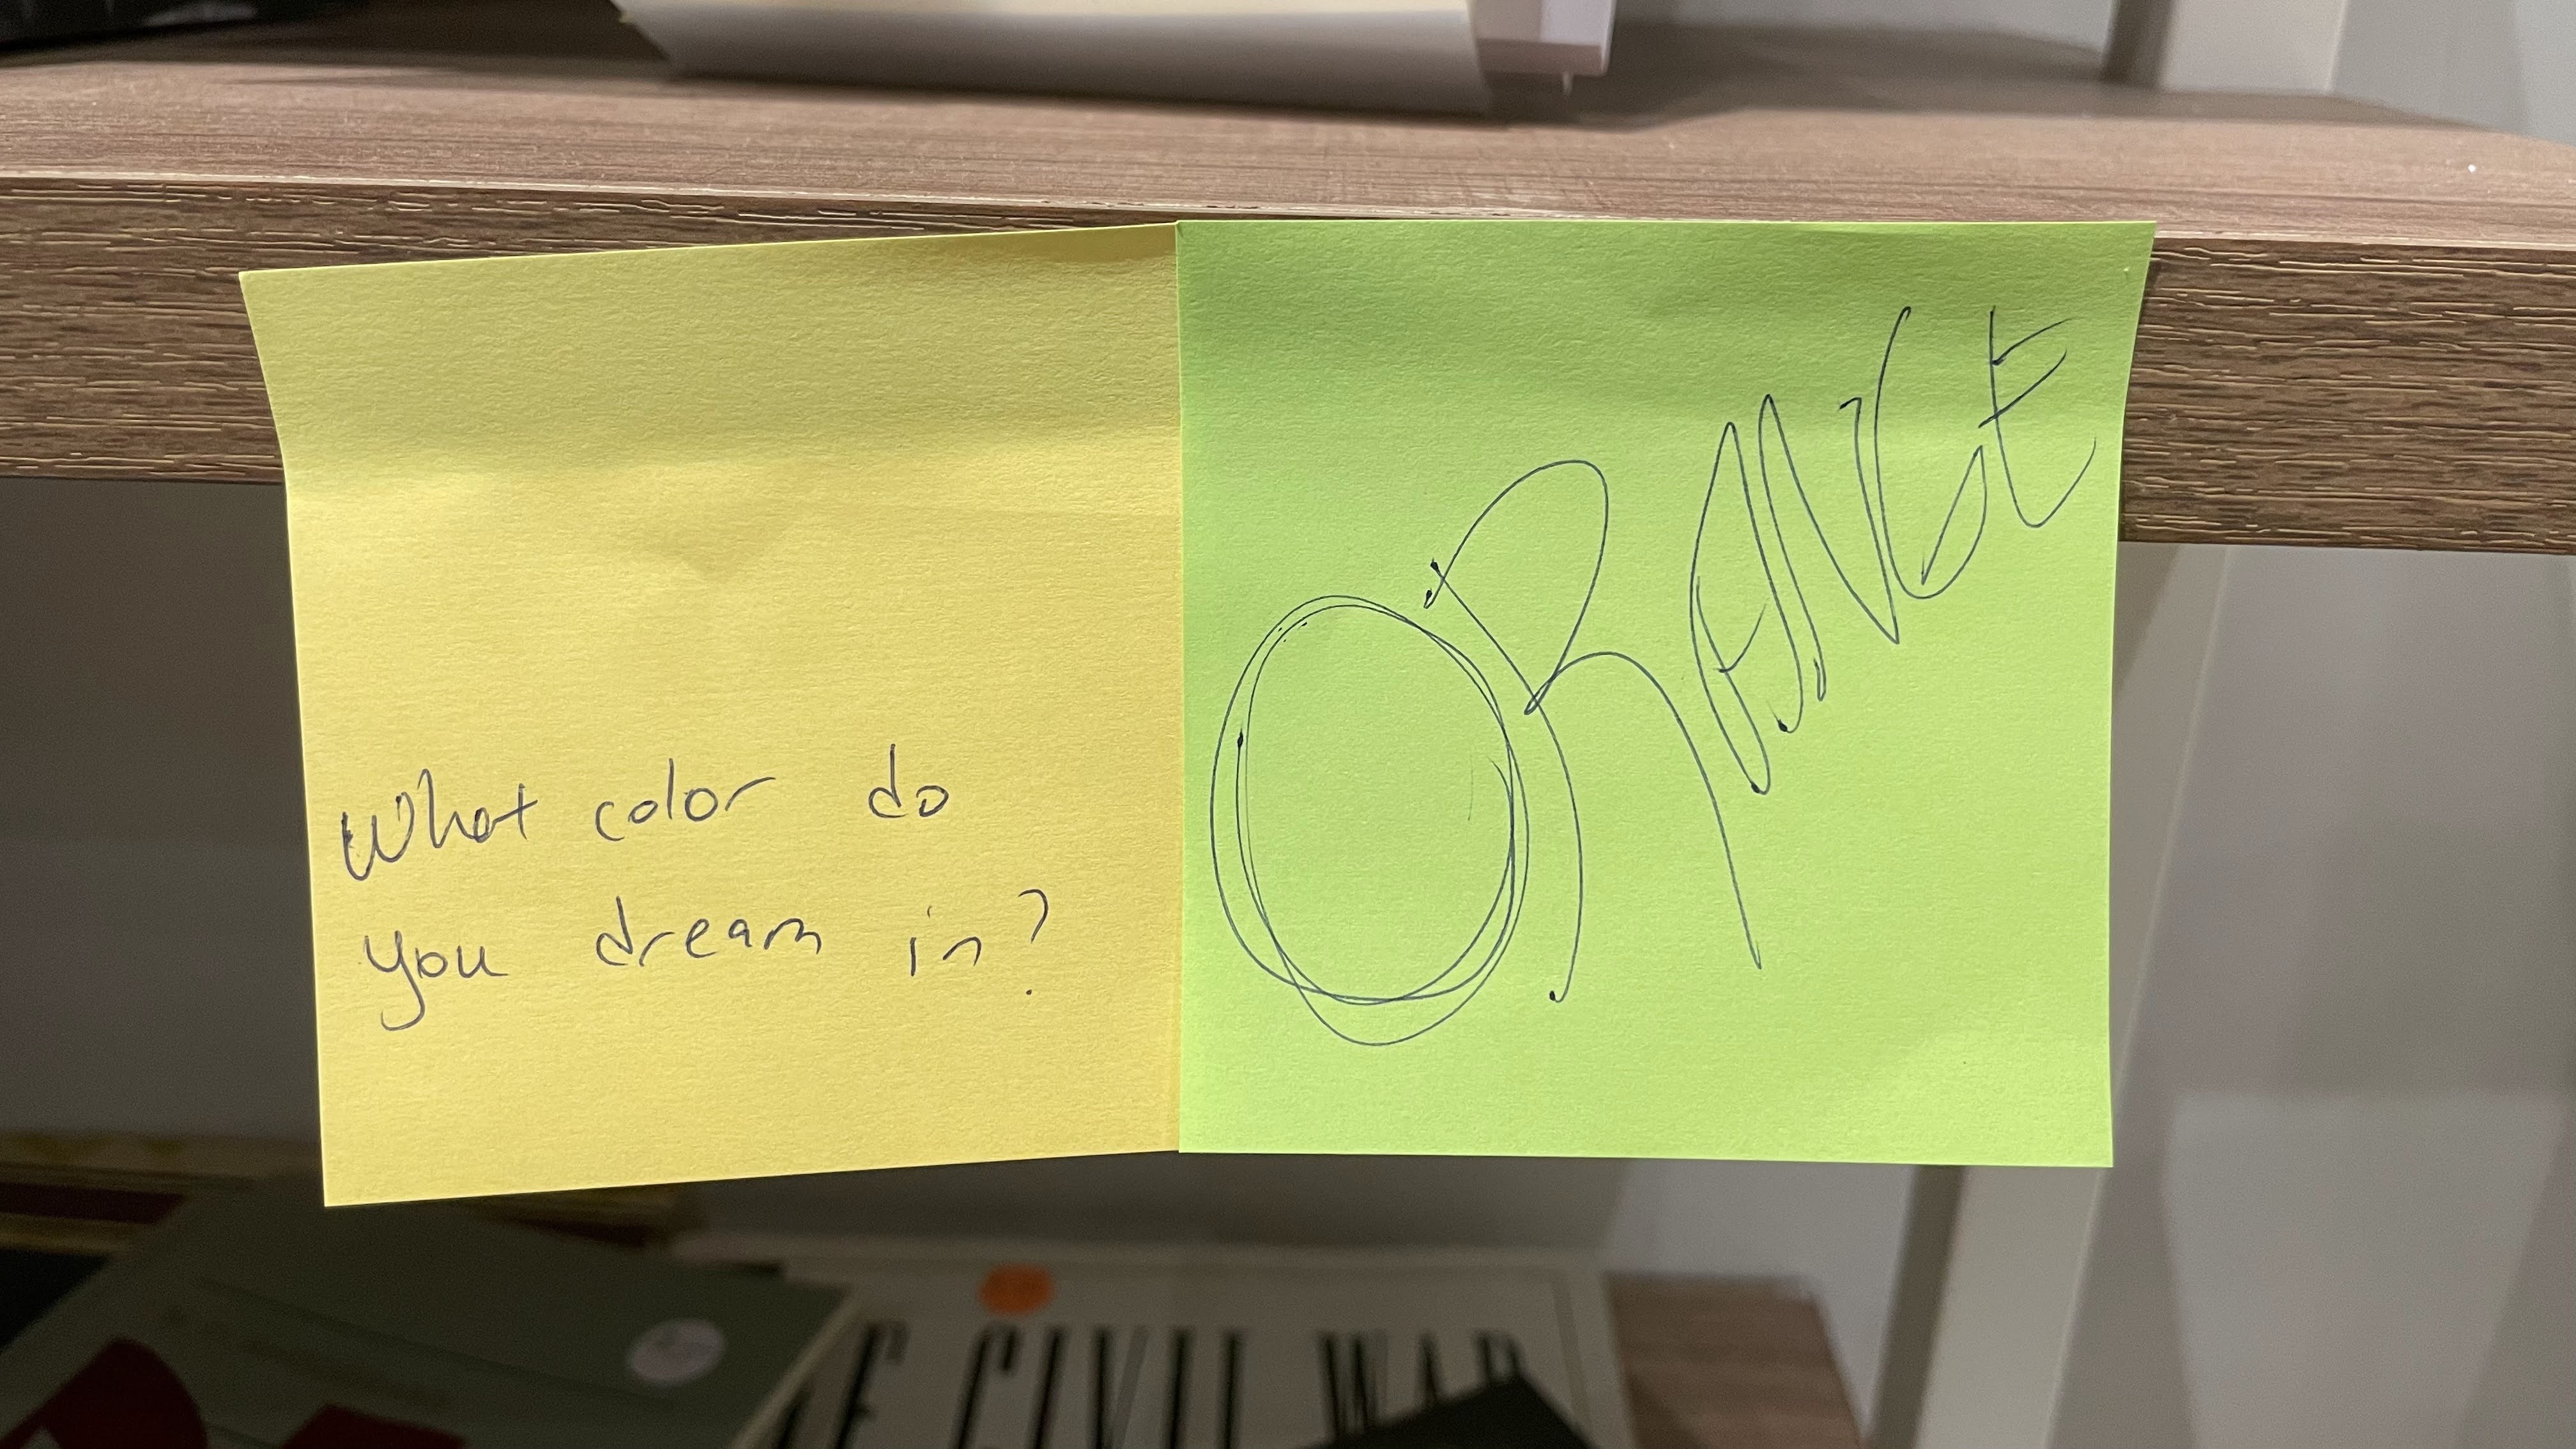 What color do
you dream in?
ORANGE
CIVIL WAR